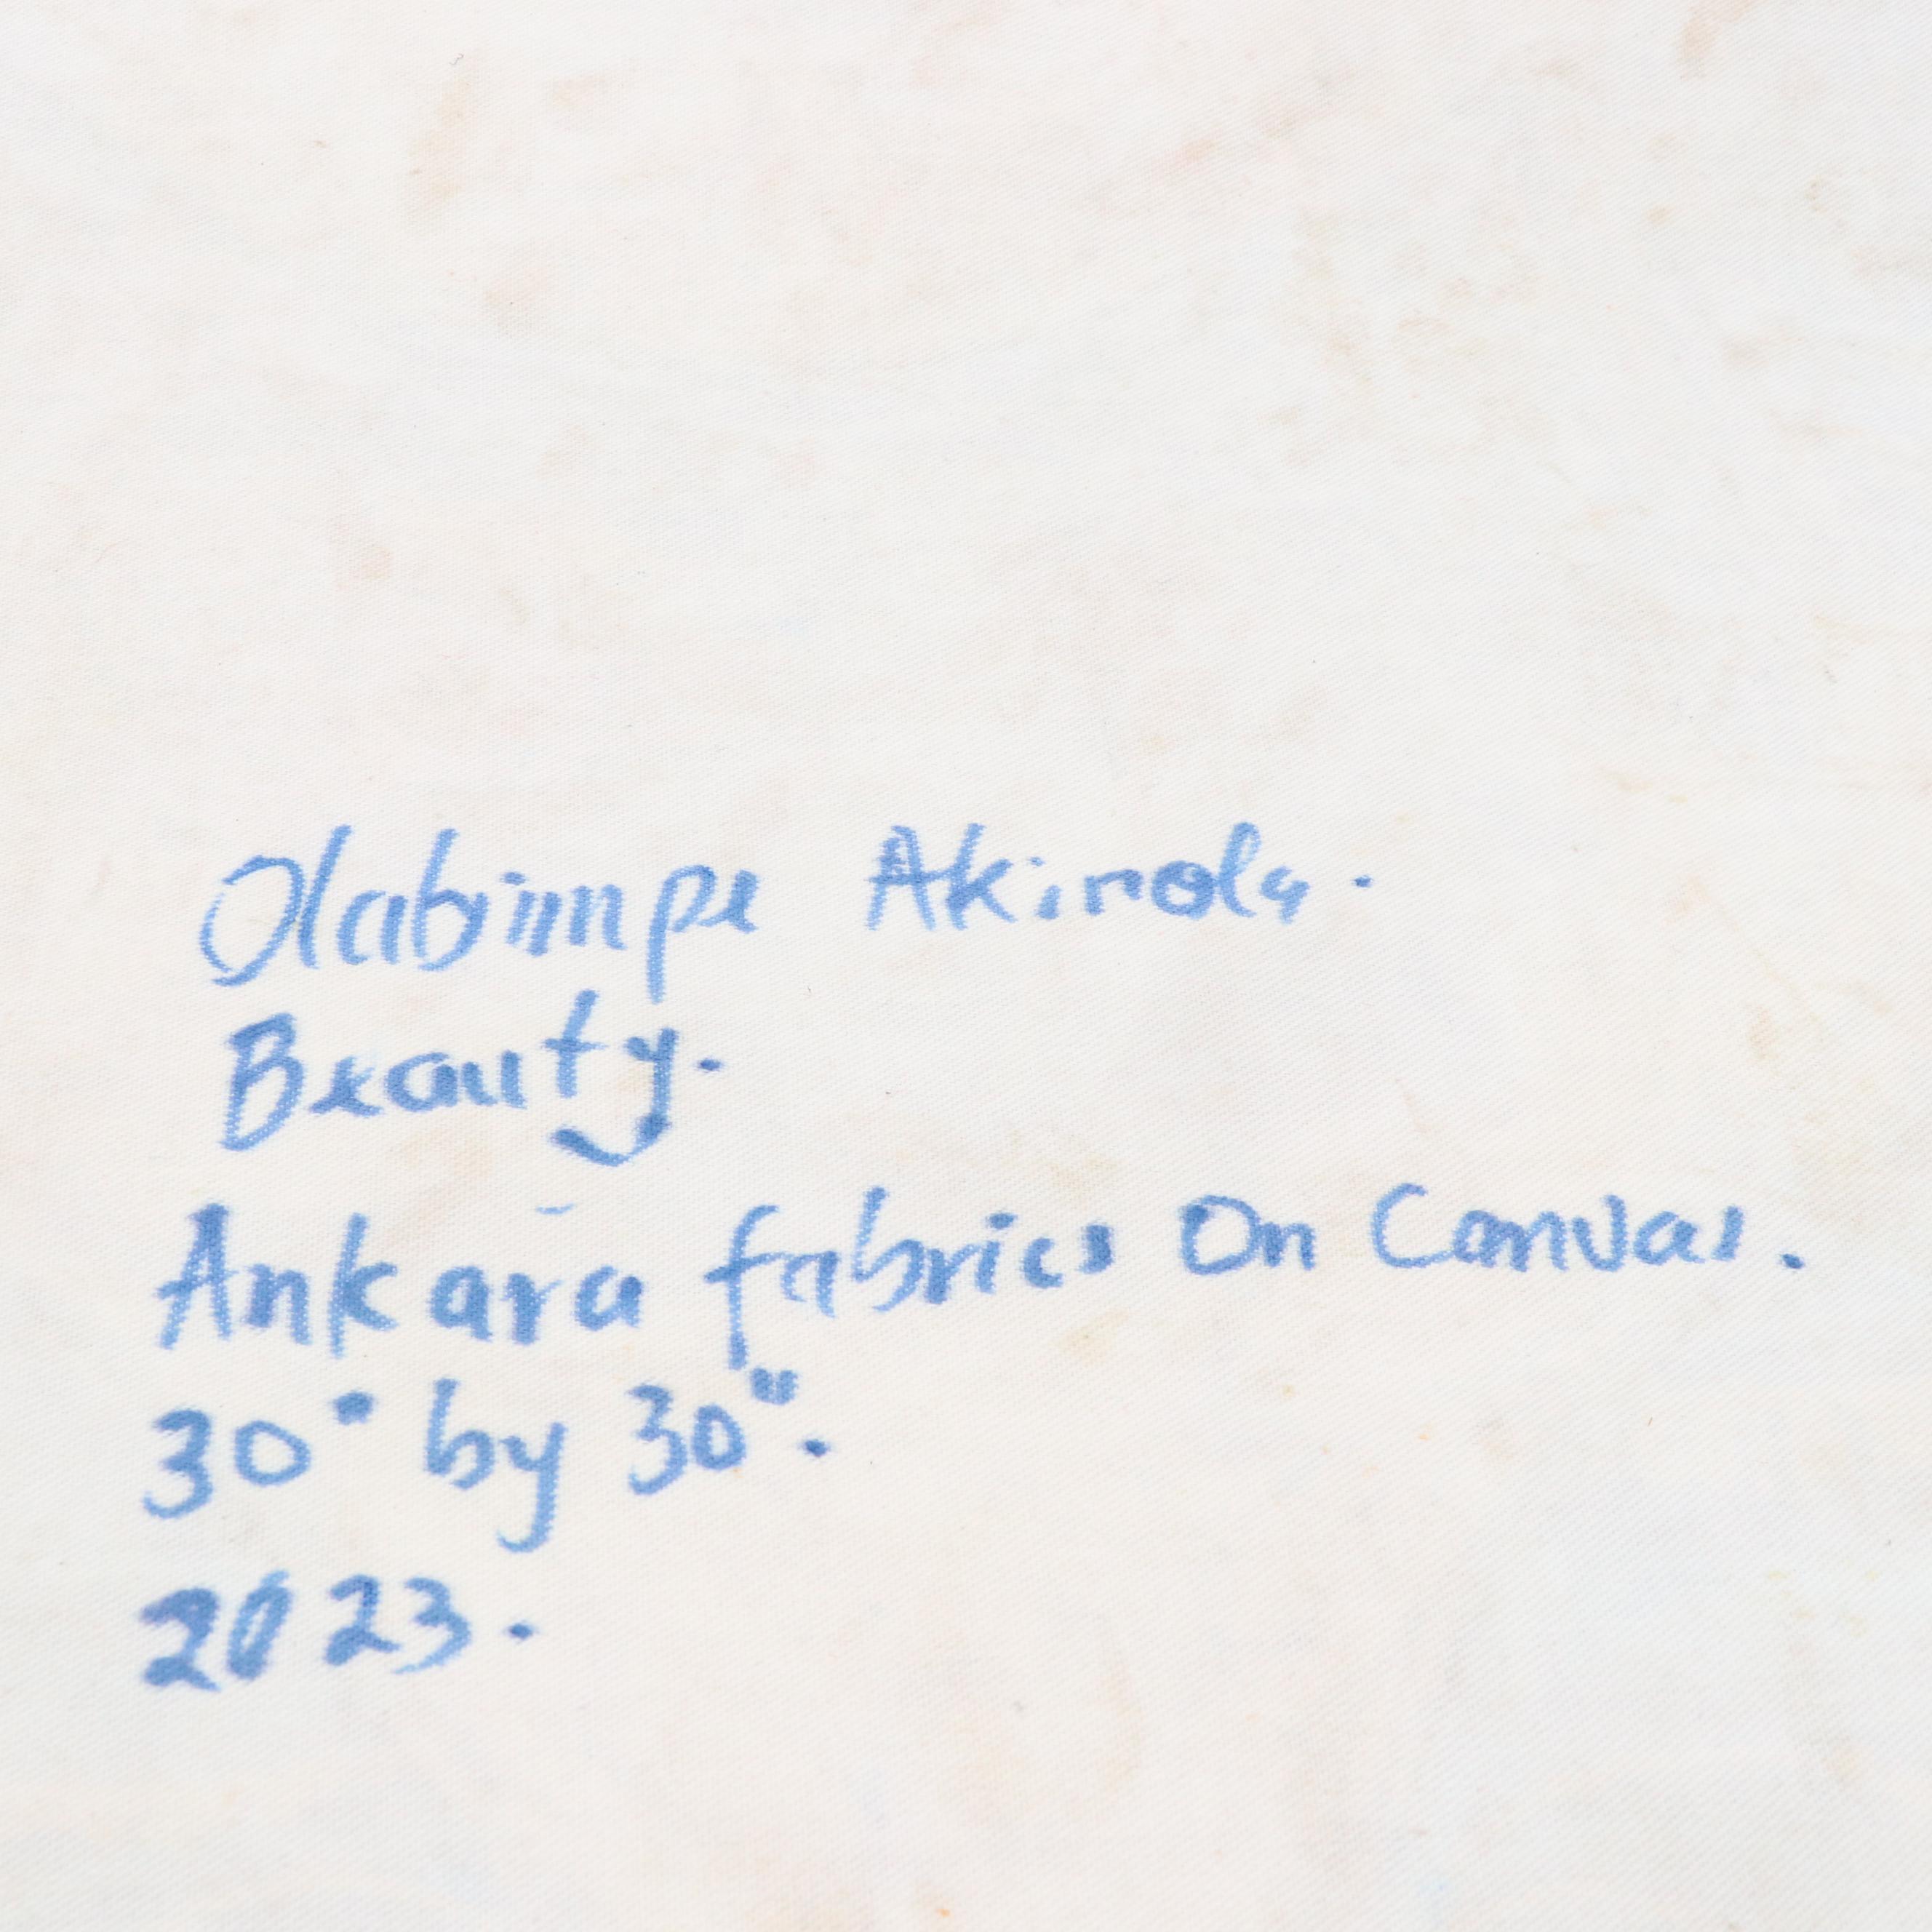 Olabimpe Akinola.
Beauty.
Ankara fabrics On Canvas.
30" by 30".
2023.